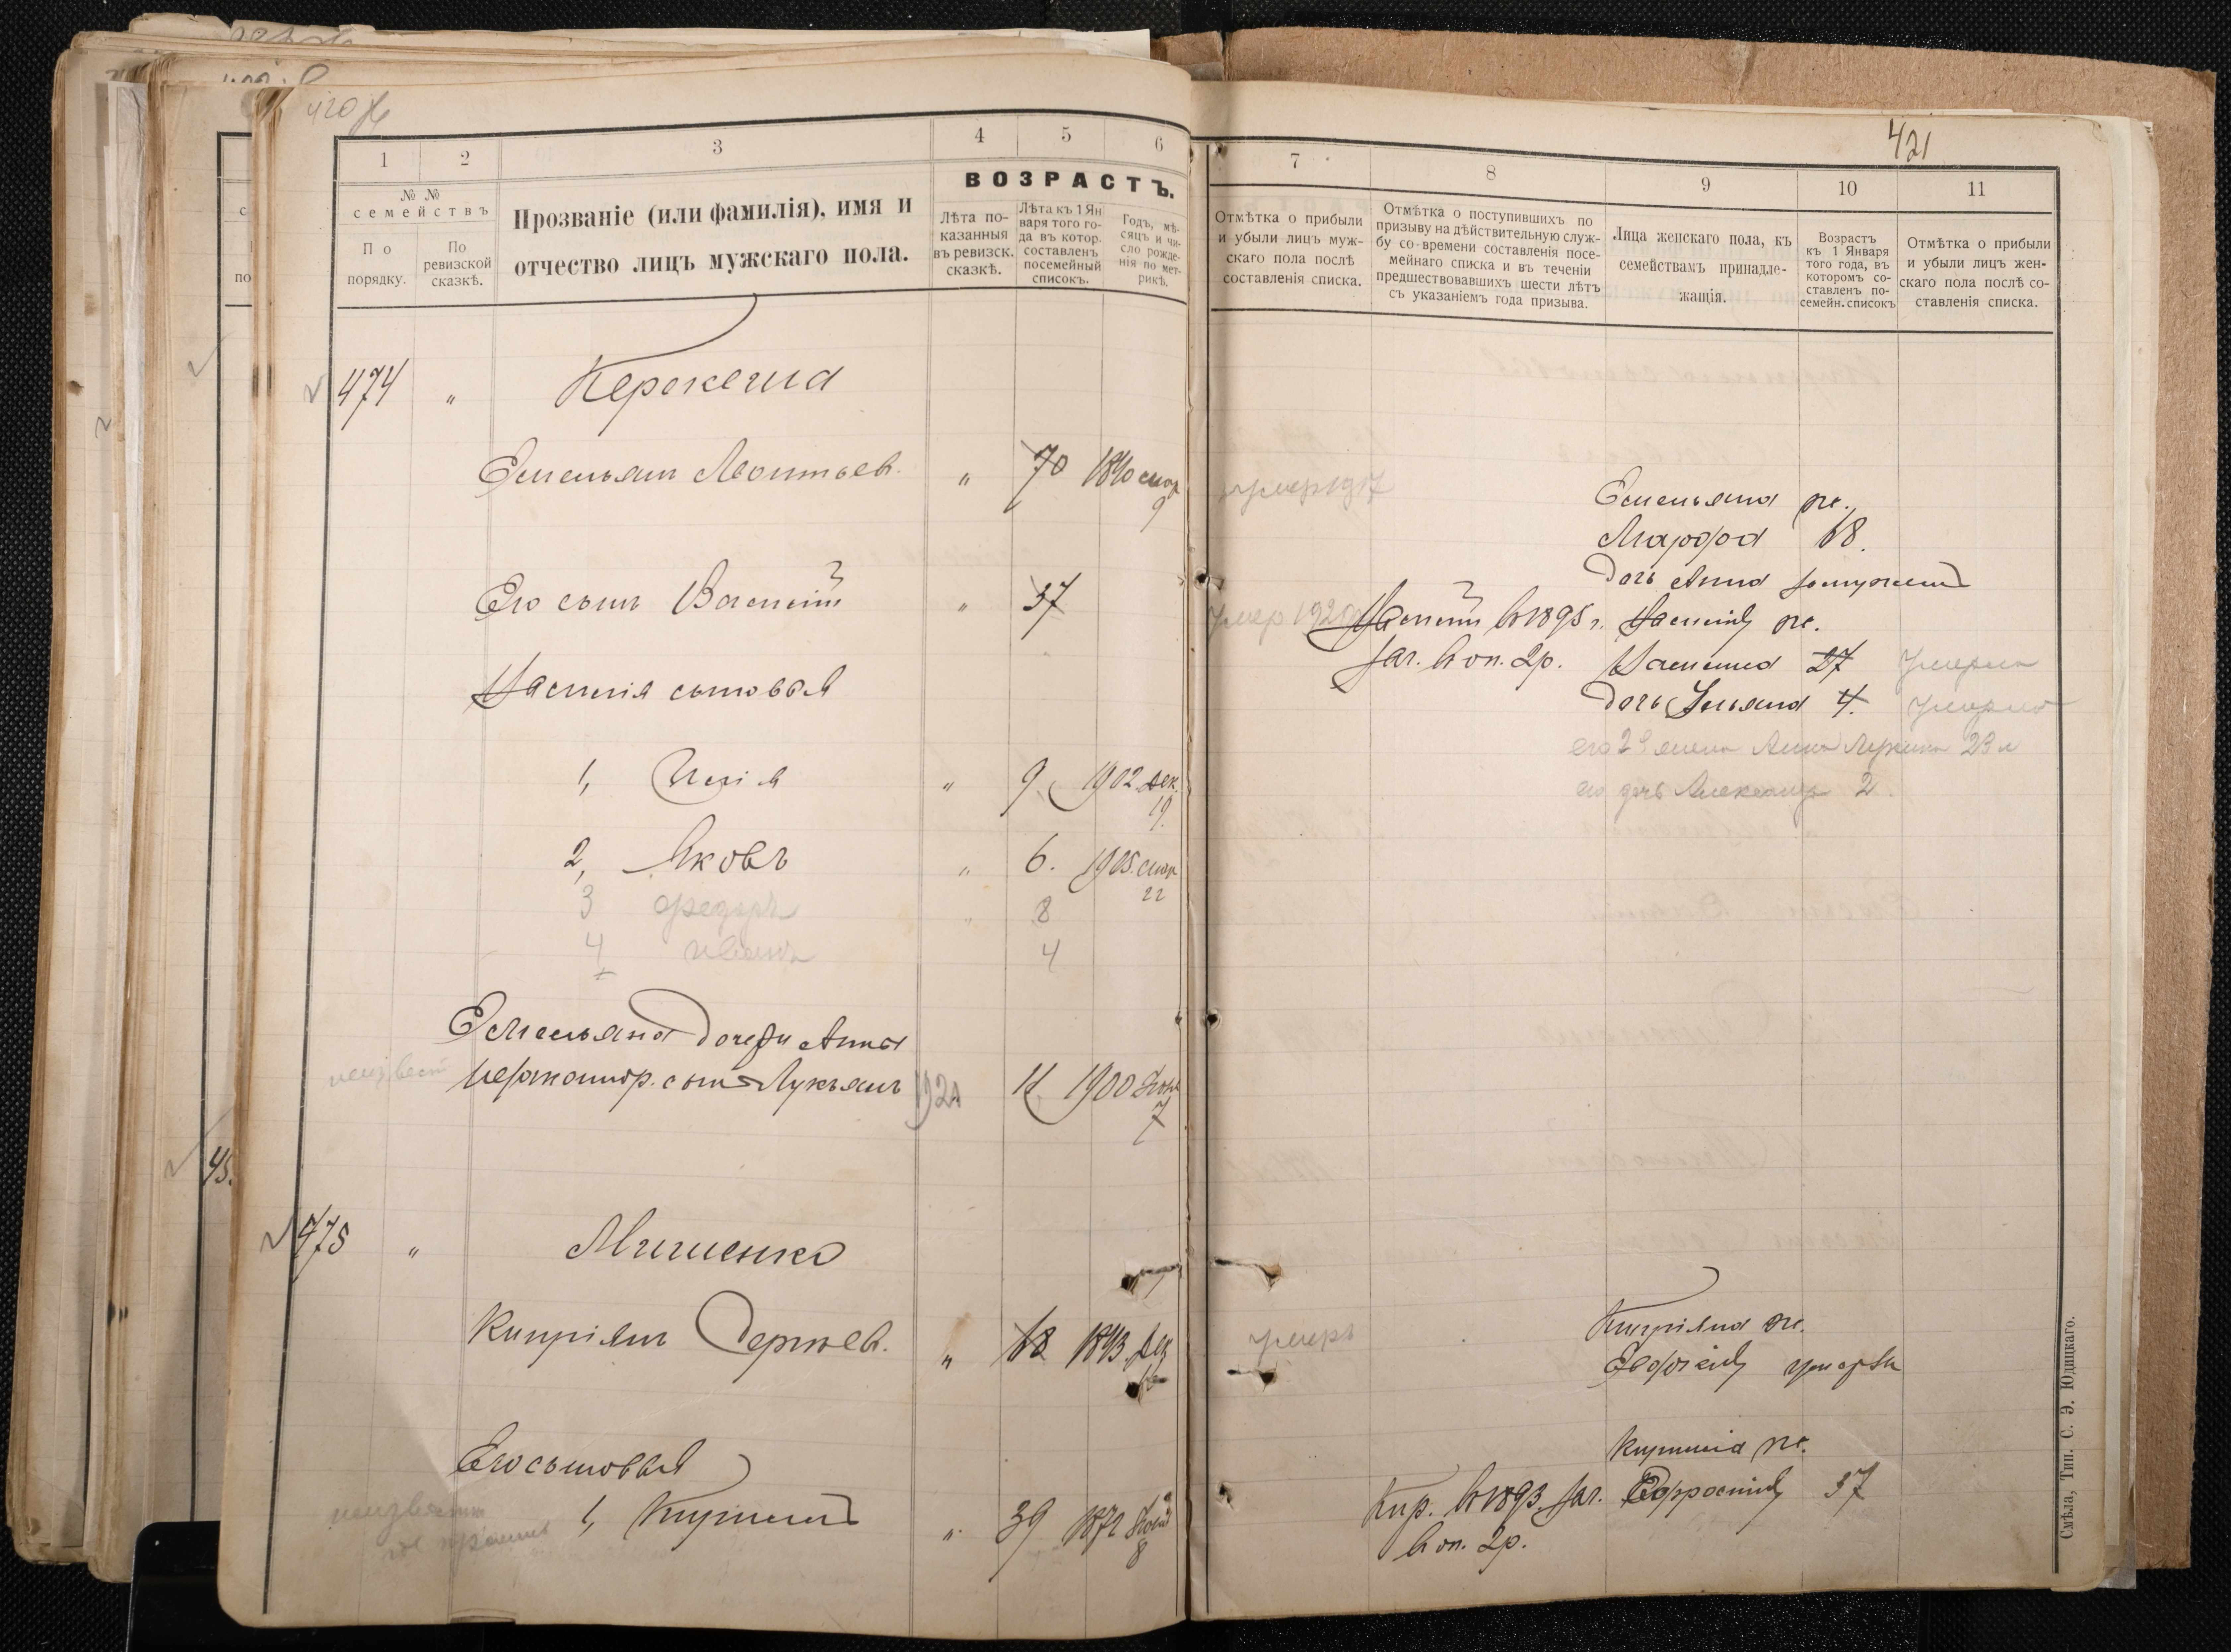 421
1 2 3 4 5 6
№ №
семействъ
По
порядку.
По
ревизской
сказкѣ.
Прозваніе (или фамилія), имя и
отчество лицъ мужскаго пола.
ВОЗРАСТЪ.
Лѣта по-
казанныя
въ ревизск.
сказкѣ.
Лѣта къ 1 Ян
варя того го-
да въ котор.
составленъ
посемейный
списокъ.
Годъ, мѣ-
сяцъ и чи-
сло рожде-
нія по мет-
рикѣ.
474 "
Емельян Леонтьев. " 70 1840
9
Его сын Василій " 37
Василія сыновья
1, Илія " 9 1902 дек.
19.
2, Яковъ " 6. 1905.
22
3 Федоръ " 8
4 Иванъ 4
Емельяна дочери Анны
сын Лукьян 11 1900
7
475 " Мишенко
Кипріян Сергѣев. " 68 1843 дек
Его сыновья
1, " 39 1872
8
7 8 9 10 11
Отмѣтка о прибыли
и убыли лицъ муж-
скаго пола послѣ
составленія списка.
Отмѣтка о поступившихъ по
призыву на дѣйствительную служ-
бу со времени составленія посе-
мейнаго списка и въ теченіи
предшествовавшихъ шести лѣтъ
съ указаніемъ года призыва.
Лица женскаго пола, къ
семействамъ принадле-
жащія.
Возрастъ
къ 1 Января
того года, въ
которомъ со-
ставленъ по-
семейн. списокъ
Отмѣтка о прибыли
и убыли лицъ жен-
скаго пола послѣ со-
ставленія списка.
умер 1917
Емельяна ж.
Марфа 68.
дочь Анна замужем
умер 1920 Василій в 1895 г. Василія ж.
зач. в оп. 2р. 27 умерла
дочь Ульяна 4. умерла
его 2я жена Анна 23 л
его дочь Александра 2
умеръ
Кипріяна ж.
Евфимія умерла
ж.
Кир. в 1893 зач. Ефросинія 37
в оп. 2р.
Смѣла, Тип. С. Э. Юдицкаго.